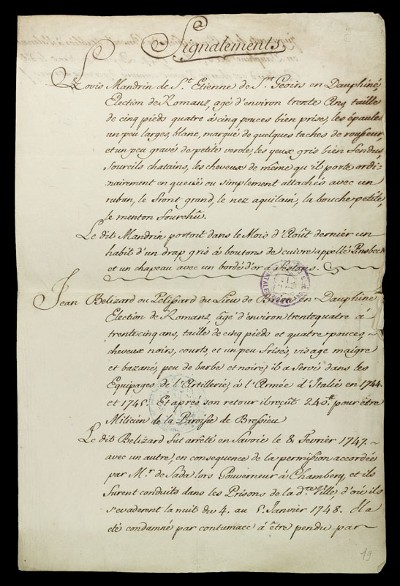 Signalements
Louis Mandrin de St. Etienne de St. Geoirs en Dauphiné
Election de Romans, agé d'environ trente cinq taille
de cinq pieds quatre à cinq pouces bien prise, les épaules
un peu larges, blanc, marqué de quelques taches de rousseur
et un peu gravé de petite verole, les yeux gris bien fendus
sourcils chatains, les cheveux de même qu'il porte ordi-
nairement en queüe ou simplement attachés avec un
ruban, le front grand, le nez aquilain, la bouche petite,
le menton fourchu.
Le dit Mandrin, portant dans le Mois d'Août dernier un
habit d'un drap gris à boutons de cuivre appellé
et un chapeau avec un bordé d'or à
Jean Belizard ou Pelissard du Lieu de en Dauphiné
Election de Romans, âgé d'environ trente quatre à
trente cinq ans, taille de cinq pieds et quatre pouces
cheveux noirs, courts, et un peu frisés, visage maigre
et bazané, peu de barbe et noire, il a servi dans les
Equipages de l'Artillerie à l'Armée d'Italie en 1744.
et 1745. Et après son retour il reçut 240 pour être
Milicien de la Paroisse de Bressieu
Le dit Belizard fut arrêté en Savoie le 8 Fevrier 1747.
avec un autre, en consequence de la permission accordée
par Mr. de Sada lors Gouverneur à Chambery, et ils
furent conduits dans les Prisons de la de. Ville, d'où ils
s'evaderent la nuit du 4. au 5. Janvier 1748. Il a
eté condamné par contumace à être pendu, par
19